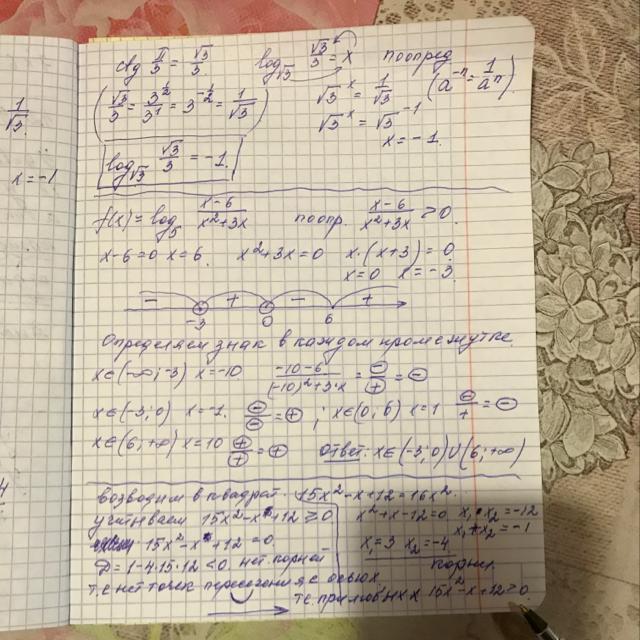 ctg π/3 = √3/3   log_√3 √3/3 = x   по опред
(√3/3 = 3^(1/2)/3^1 = 3^(-1/2) = 1/√3)   √3^x = 1/√3   (a^(-n) = 1/a^n)
√3^x = √3^(-1)
x = -1.
log_√3 √3/3 = -1.
1/√3.
x = -1
f(x) = log_5 (x-6)/(x²+3x)   по опр. (x-6)/(x²+3x) > 0.
x-6=0 x=6.   x²+3x=0   x·(x+3)=0
x=0   x=-3.
-   +   -   +
-3   0   6
Определяем знак в каждом промежутке.
x∈(-∞;-3) x=-10.   (-10-6)/((-10)²+3·x) = -/+ = -
x∈(-3;0) x=-1.   -/- = + ; x∈(0,6) x=1   -/+ = -
x∈(6;+∞) x=10   +/+ = +   Ответ: x∈(-3;0)∪(6;+∞)
Возводим в квадрат. 15x²-x+12=16x².
учитываем 15x²-x+12≥0
x²+x-12=0   x₁·x₂=-12
x₁+x₂=-1
15x²-x+12=0
x₁=3   x₂=-4
D=1-4·15·12<0 нет корней
корни.
т.е нет точек пересечения с осью x,
т.е. при любых x 15x²-x+12≥0.
4